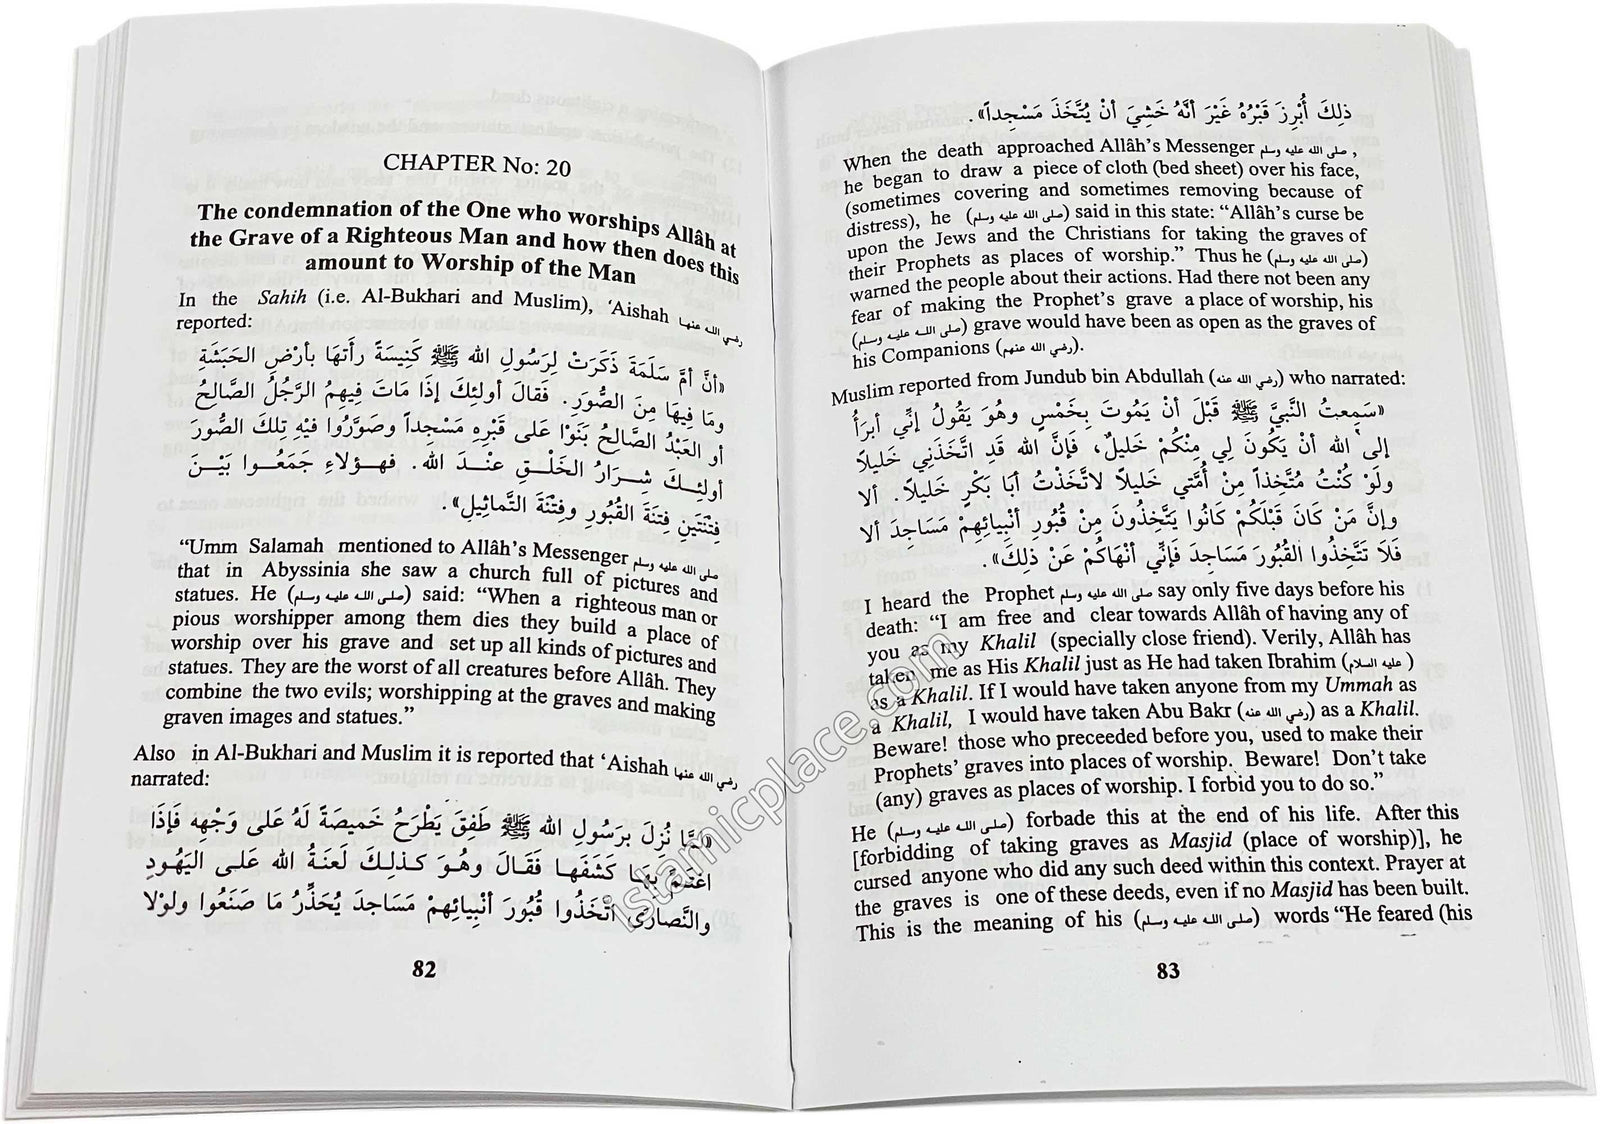 CHAPTER No: 20
The condemnation of the One who worships Allâh at
the Grave of a Righteous Man and how then does this
amount to Worship of the Man
In the Sahih (i.e. Al-Bukhari and Muslim), ‘Aishah رضي الله عنها
reported:
«أنَّ أمَّ سَلَمَةَ ذَكَرَتْ لِرَسُولِ الله ﷺ كَنِيسَةً رأَتهَا بأرْضِ الحَبَشَةِ
ومَا فِيهَا مِنَ الصُّوَرِ. فَقالَ أولئِكَ إذَا مَاتَ فِيهِمُ الرَّجُلُ الصَّالحُ
أو العَبْدُ الصَّالحُ بَنَوْا عَلى قَبْرِه مَسْجداً وصَوَّرُوا فيْهِ تِلكَ الصُّورَ
أولئِكَ شِرَارُ الخَلْقِ عنْدَ الله. فهؤلاءِ جَمَعُوا بَيْنَ
فِتْنَتَينِ فِتنَةَ القُبُورِ وفِتْنَةَ التَّماثِيلِ».
“Umm Salamah mentioned to Allâh’s Messenger صلى الله عليه وسلم
that in Abyssinia she saw a church full of pictures and
statues. He (صلى الله عليه وسلم) said: “When a righteous man or
pious worshipper among them dies they build a place of
worship over his grave and set up all kinds of pictures and
statues. They are the worst of all creatures before Allâh. They
combine the two evils; worshipping at the graves and making
graven images and statues.”
Also in Al-Bukhari and Muslim it is reported that ‘Aishah رضي الله عنها
narrated:
«لمَّا نُزِلَ برَسُولِ الله ﷺ طَفِقَ يَطْرَحُ خَميصَةً لَهُ عَلى وَجْهِهِ فَإذَا
اغْتَمَّ بهَا كَشَفَهَا فَقَالَ وهُوَ كذلِكَ لَعنَةُ الله عَلى اليَهُودِ
والنَّصارَى اتَّخَذُوا قُبُورَ أنْبِيائِهمْ مَساجدَ يُحَذِّرُ مَا صَنَعُوا ولوْلا
82
ذلِكَ أُبْرِزَ قَبْرُهُ غَيْرَ أنَّهُ خَشِيَ أنْ يُتَّخَذَ مَسْجِداً».
When the death approached Allâh’s Messenger صلى الله عليه وسلم ,
he began to draw a piece of cloth (bed sheet) over his face,
(sometimes covering and sometimes removing because of
distress), he (صلى الله عليه وسلم) said in this state: “Allâh’s curse be
upon the Jews and the Christians for taking the graves of
their Prophets as places of worship.” Thus he (صلى الله عليه وسلم)
warned the people about their actions. Had there not been any
fear of making the Prophet’s grave a place of worship, his
(صلى الله عليه وسلم) grave would have been as open as the graves of
his Companions (رضي الله عنهم).
Muslim reported from Jundub bin Abdullah (رضي الله عنه) who narrated:
«سَمِعتُ النَّبيَّ ﷺ قَبْلَ أنْ يَمُوتَ بِخَمْسٍ وهُوَ يَقُولُ إنِّي أبرَأُ
إلى الله أنْ يكُونَ لِي مِنْكُمْ خَليلٌ، فَإنَّ الله قَدِ اتَّخَذَنِي خَليلاً
ولَوْ كُنْتُ مُتَّخِذاً مِنْ أُمَّتي خَليلاً لاتَّخَذْتُ أبَا بَكْرٍ خَليلاً. ألا
وإنَّ مَنْ كَانَ قَبْلَكُمْ كَانُوا يَتَّخِذُونَ مِنْ قُبُورِ أنْبِيائِهِمْ مَسَاجِدَ ألا
فَلَا تَتَّخِذُوا القُبُورَ مَسَاجِدَ فَإنِّي أنْهَاكُمْ عَنْ ذلِكَ».
I heard the Prophet صلى الله عليه وسلم say only five days before his
death: “I am free and clear towards Allâh of having any of
you as my Khalil (specially close friend). Verily, Allâh has
taken me as His Khalil just as He had taken Ibrahim (عليه السلام)
as a Khalil. If I would have taken anyone from my Ummah as
a Khalil, I would have taken Abu Bakr (رضي الله عنه) as a Khalil.
Beware! those who preceeded before you, used to make their
Prophets’ graves into places of worship. Beware! Don’t take
(any) graves as places of worship. I forbid you to do so.”
He (صلى الله عليه وسلم) forbade this at the end of his life. After this
[forbidding of taking graves as Masjid (place of worship)], he
cursed anyone who did any such deed within this context. Prayer at
the graves is one of these deeds, even if no Masjid has been built.
This is the meaning of his (صلى الله عليه وسلم) words “He feared (his
83
islamicplace.com